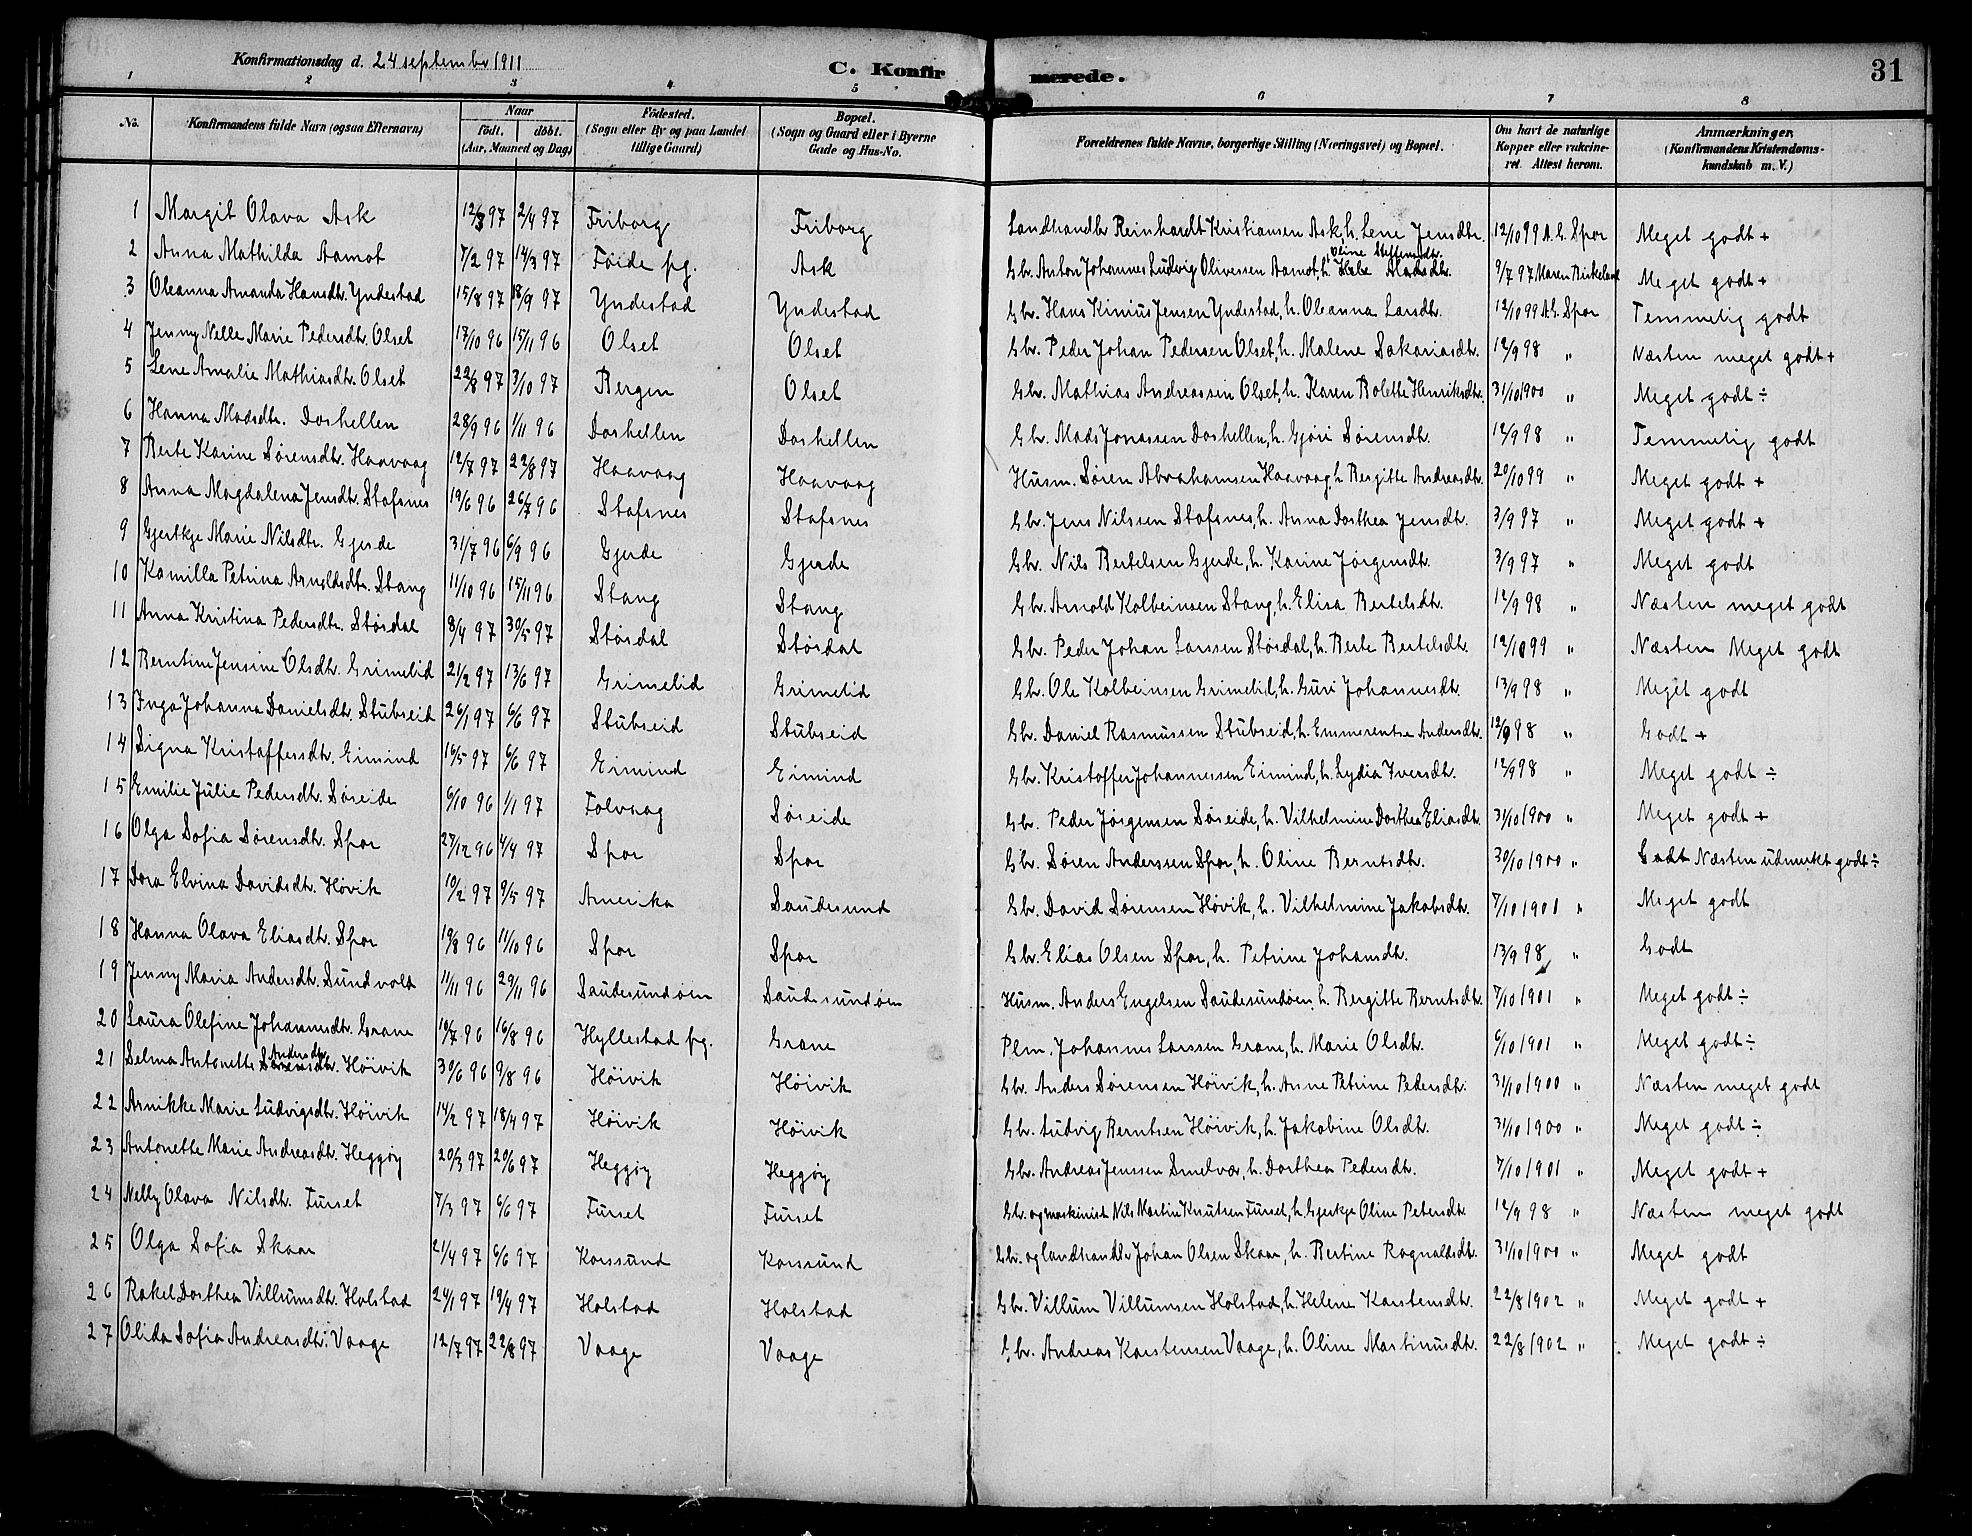 Konfirmationsdag d. 24 september 1911
C. Konfirmerede.
31
1 2 3 4 5 6 7 8
No. | Konfirmandens fulde Navn (ogsaa Efternavn) | Naar født. døbt. (Aar, Maaned og Dag) | Fødested. (Sogn eller By og paa Landet tillige Gaard) | Bopæl. (Sogn og Gaard eller i Byerne Gade og Hus-No. | Forældrenes fulde Navne, borgerlige Stilling (Næringsvei) og Bopæl. | Om havt de naturlige Kopper eller vakcineret. Attest herom. | Anmærkninger. (Konfirmandens Kristendomskundskab m. V.)
1 Margit Olava Ask 12/3 97 2/4 97 Friborg Friborg Landhandler Reinhardt Kristiansen Ask, h. Lene Jensdtr. 12/10 99 A. G. Spor Meget godt +
2 Anna Mathilda Aamot 7/2 97 14/3 97 Føide pg. Ask Gbr. Anton Johannes Ludvig Olivessen Aamot, h. Oline Steffensdtr. 9/7 97 Maren Birkeland Meget godt +
3 Oleanna Amanda Hansdtr. Yndestad 15/8 97 18/9 97 Yndestad Yndestad Gbr. Hans Kinius Jensen Yndestad, h. Oleanna Larsdtr. 12/10 99 A.G. Spor Temmelig godt
4 Jenny Nelle Marie Pedersdtr. Olset 17/10 96 15/11 96 Olset Olset Gbr. Peder Johan Pedersen Olset, h. Malene Sakariasdtr. 12/9 98 " Næsten meget godt +
5 Lene Amalie Mathiasdtr. Olset 22/8 97 3/10 97 Bergen Olset Gbr. Mathias Andreassen Olset, h. Karen Bolette Henriksdtr. 31/10 1900 " Meget godt ÷
6 Hanna Madsdtr. Doshellen 28/9 96 1/11 96 Doshellen Doshellen Gbr. Mads Jonassen Doshellen, h. Gjøri Sørensdtr. 12/9 98 " Temmelig godt
7 Berte Karine Sørensdtr. Haavaag 12/7 97 22/8 97 Haavaag Haavaag Husm. Søren Abrahamsen Haavaag, h. Bergitte Andreasdtr. 20/10 99 " Meget godt +
8 Anna Magdalena Jensdtr. Stafsnes 19/6 96 26/7 96 Stafsnes Stafsnes Gbr. Jens Nilssen Stafsnes, h. Anna Dorthea Jensdtr. 3/9 97 " Meget godt +
9 Gjertkje Marie Nilsdtr. Gjerde 31/7 96 6/9 96 Gjerde Gjerde Gbr. Nils Bertelsen Gjerde, h. Karine Jørgensdtr. 3/9 97 " Meget godt
10 Kamilla Petrina Arnoldsdtr. Stang 11/10 96 15/11 96 Stang Stang Gbr. Arnold Kolbeinsen Stang, h. Elisa Bertelsdtr. 12/9 98 " Næsten meget godt
11 Anna Kristina Pedersdtr. Størdal 8/4 97 30/5 97 Størdal Størdal Gbr. Peder Johan Larssen Størdal, h. Berte Bertelsdtr. 12/10 99 " Næsten Meget godt
12 Berntine Jensine Olsdtr. Grimelid 21/2 97 13/6 97 Grimelid Grimelid Gbr. Ole Kolbeinsen Grimelid, h. Guri Johannesdtr. 13/9 98 " Meget godt
13 Inga Johanna Danielsdtr. Stubseid 26/1 97 6/6 97 Stubseid Stubseid Gbr. Daniel Rasmussen Stubseid, h. Emmerentse Andersdtr. 12/9 98 " Godt +
14 Signa Kristoffersdtr. Eimind 16/5 97 6/6 97 Eimind Eimind Gbr. Kristoffer Johannessen Eimind, h. Lydia Iversdtr. 12/9 98 " Meget godt ÷
15 Emilie Julie Pedersdtr. Søreide 6/10 96 1/1 97 Folvaag Søreide Gbr. Peder Jørgensen Søreide, h. Vilhelmine Dorthea Eliasdtr. 31/10 1900 " Meget godt +
16 Olga Sofia Sørensdtr. Spor 27/12 96 4/4 97 Spor Spor Gbr. Søren Anderssen Spor, h. Oline Berntsdtr. 30/10 1900 " Godt Næsten udmerket godt ÷
17 Dora Elvina Davidsdtr. Høvik 10/2 97 9/5 97 Amerika Saudesund Gbr. David Sørensen Høvik, h. Vilhelmine Jakobsdtr. 7/10 1901 " Meget godt
18 Hanna Olava Eliasdtr. Spor 19/8 96 11/10 96 Spor Spor Gbr. Elias Olsen Spor, h. Petrine Johansdtr. 13/9 98 " Godt
19 Jenny Maria Andersdtr. Sundvold 11/11 96 29/11 96 Saudesundøen Saudesundøen Husm. Anders Engelsen Saudesundøen, h. Bergitte Berntsdtr. 7/10 1901 " Meget godt ÷
20 Laura Olefine Johannesdtr. Grane 10/7 96 16/8 96 Hyllestad pg. Grane Plm. Johannes Larssen Grane, h. Marie Olsdtr. 6/10 1901 " Meget godt ÷
21 Selma Antonette Andersdtr. Høivik 30/6 96 9/8 96 Høivik Høivik Gbr. Anders Sørensen Høivik, h. Anne Petrine Pedersdtr. 31/10 1900 " Næsten meget godt
22 Arnikke Marie Ludvigsdtr. Høivik 14/2 97 18/4 97 Høivik Høivik Gbr. Ludvig Berntsen Høivik, h. Jakobine Olsdtr. 31/10 1900 " Meget godt ÷
23 Antonette Marie Andreasdtr. Heggøy 20/3 97 20/6 97 Heggøy Heggøy Gbr. Andreas Jenssen Smelvær, h. Dorthea Pedersdtr. 7/10 1901 " Meget godt +
24 Nelly Olava Nilsdtr. Furset 7/3 97 6/6 97 Furset Furset Gbr. og maskinist Nils Martin Knutsen Furset, h. Gjertkje Oline Petersdtr. 12/9 98 " Næsten meget godt
25 Olga Sofia Skaar 21/4 97 6/6 97 Korssund Korssund Gbr. og landhandler Johan Olsen Skaar, h. Bertine Ragnaldsdtr. 31/10 1900 " Meget godt
26 Rakel Dorthea Villumsdtr. Holstad 24/1 97 19/4 97 Holstad Holstad Gbr. Villum Villumsen Holstad, h. Helene Karstensdtr. 22/8 1902 " Meget godt +
27 Olida Sofia Andreasdtr. Vaage 12/7 97 22/8 97 Vaage Vaage Gbr. Andreas Karstensen Vaage, h. Oline Martinusdtr. 22/8 1902 " Meget godt ÷